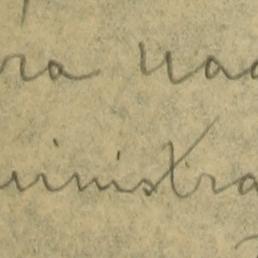 ra nao
ministra